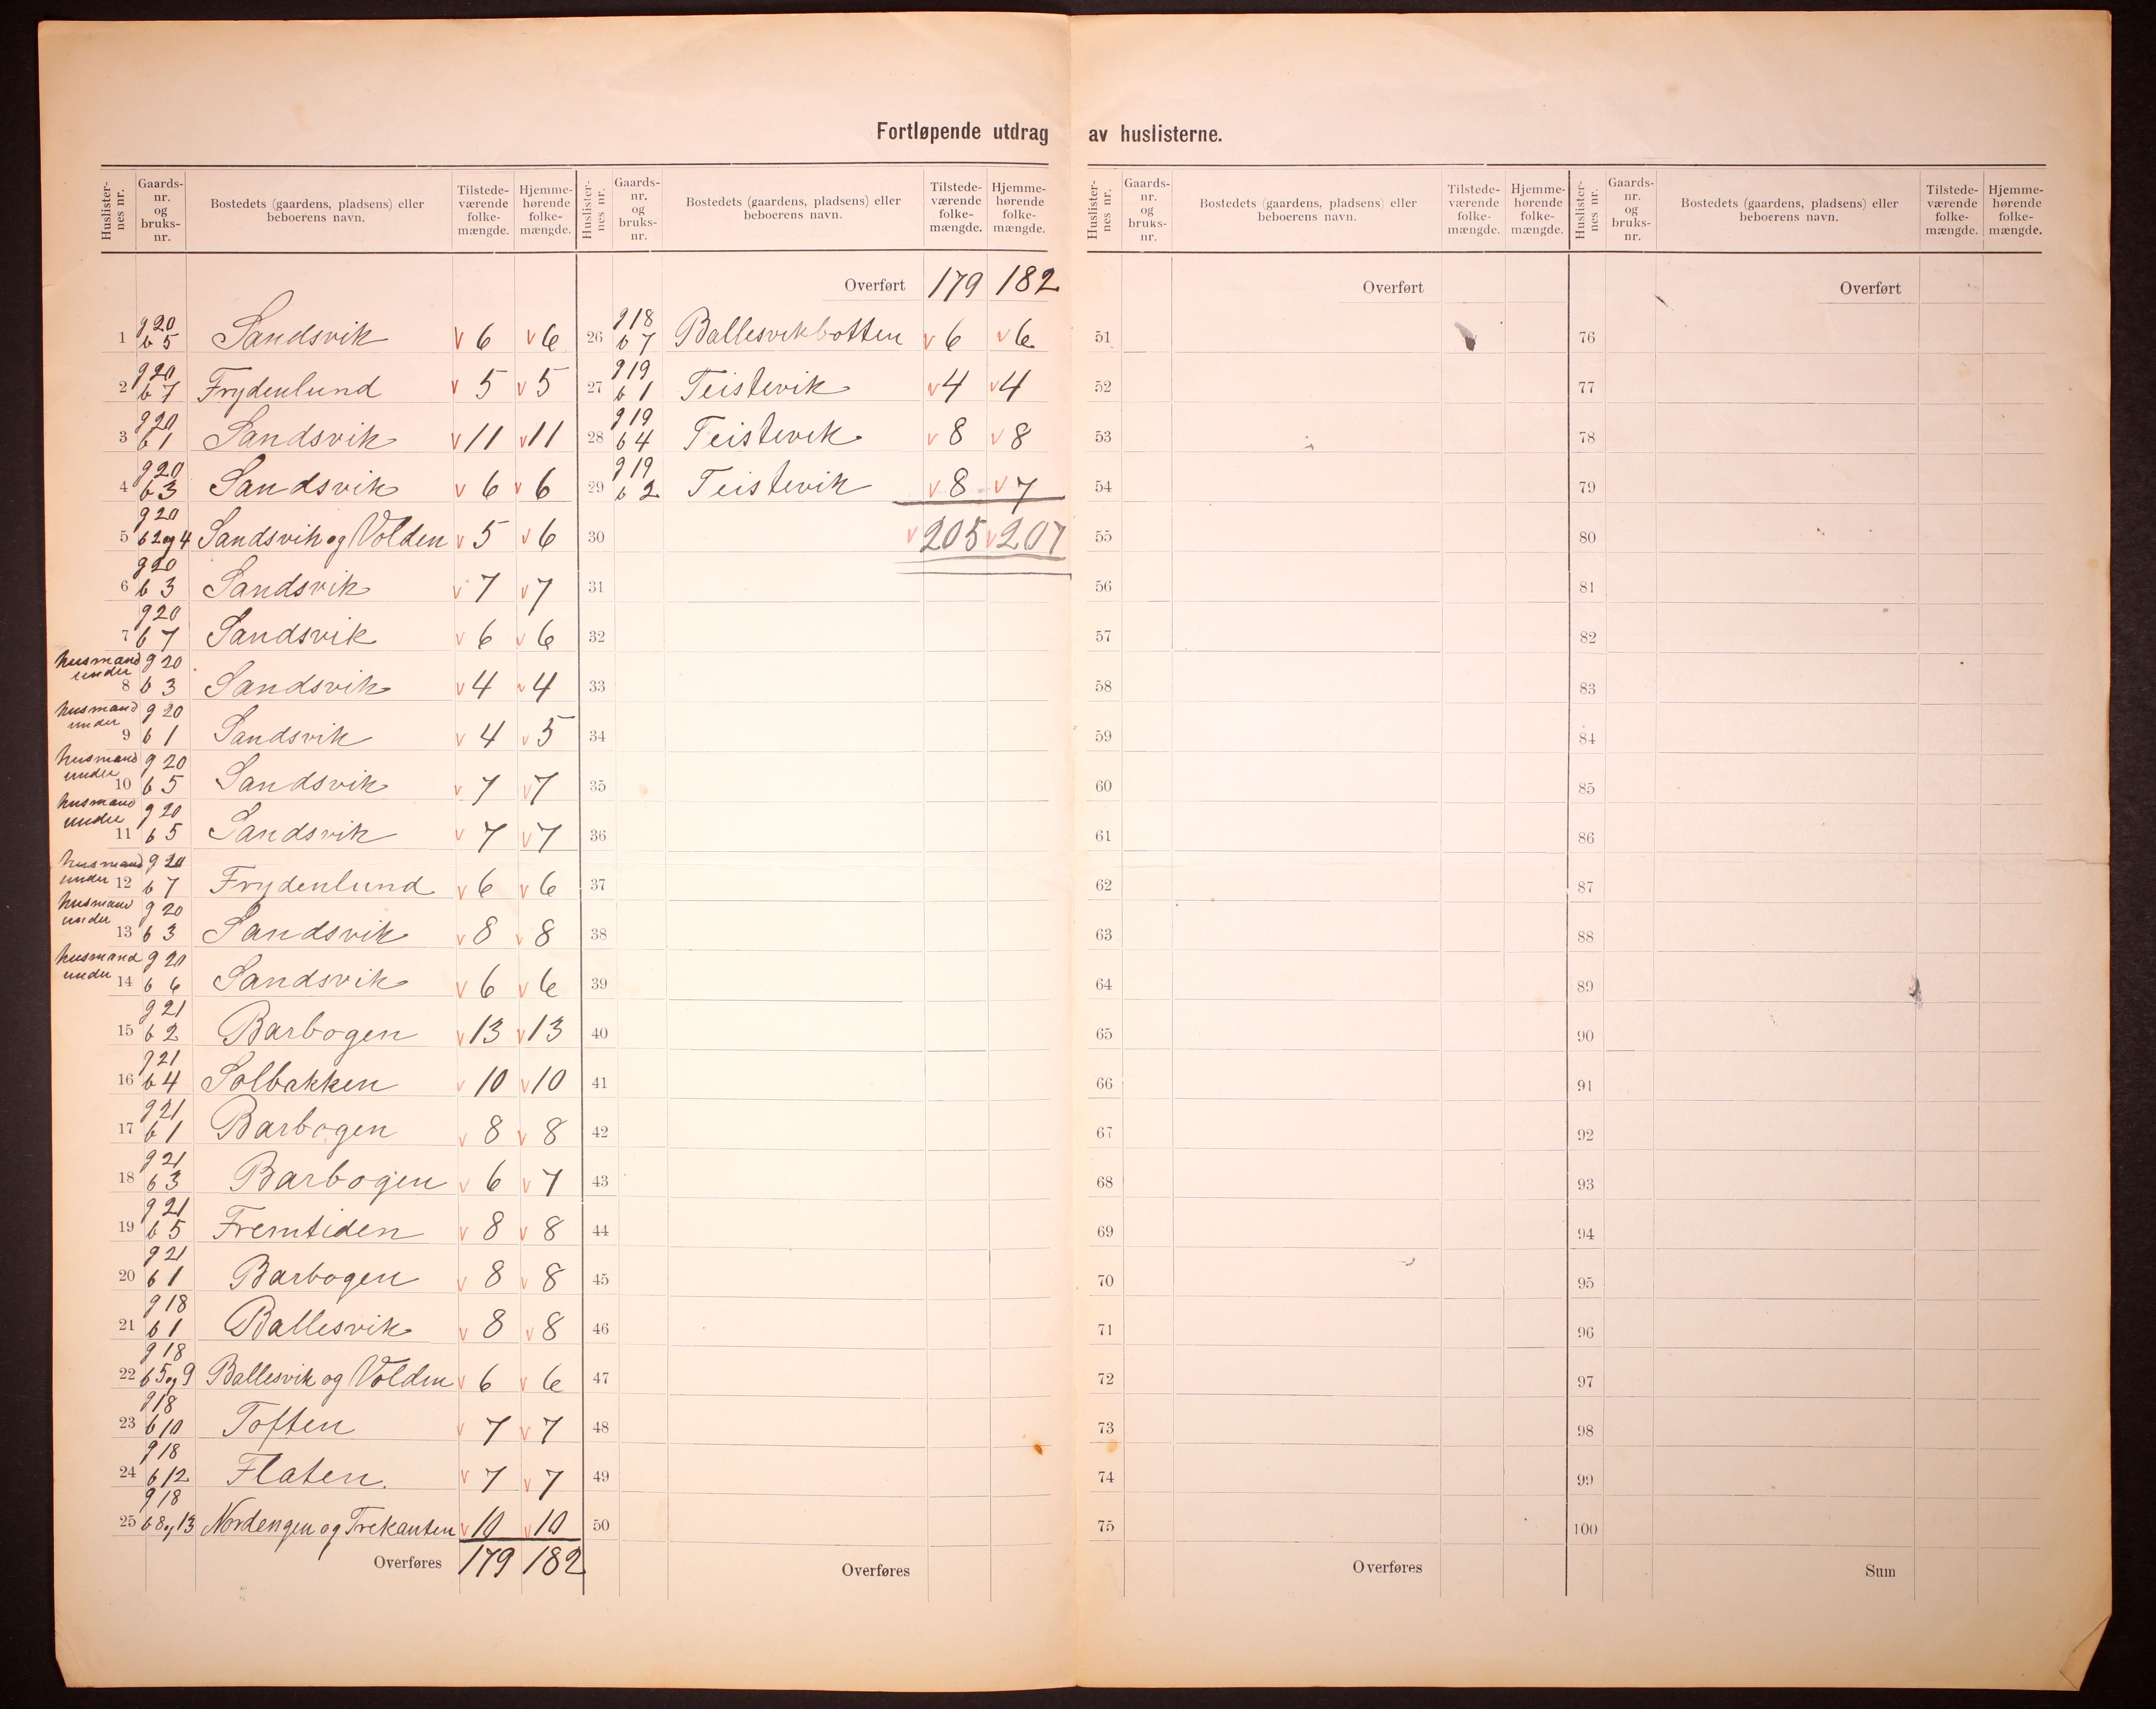 Fortløpende utdrag av huslisterne.
Huslisternes nr. Gaards-nr. og bruks-nr. Bostedets (gaardens, pladsens) eller beboerens navn. Tilstedeværende folkemængde. Hjemmehørende folkemængde. Huslisternes nr. Gaards-nr. og bruks-nr. Bostedets (gaardens, pladsens) eller beboerens navn. Tilstedeværende folkemængde. Hjemmehørende folkemængde. Huslisternes nr. Gaards-nr. og bruks-nr. Bostedets (gaardens, pladsens) eller beboerens navn. Tilstedeværende folkemængde. Hjemmehørende folkemængde. Huslisternes nr. Gaards-nr. og bruks-nr. Bostedets (gaardens, pladsens) eller beboerens navn. Tilstedeværende folkemængde. Hjemmehørende folkemængde.
Overført 179 182 Overført Overført
1 g 20 b 5 Sandsvik v 6 v 6 26 g 18 b 7 Ballesvikbotten v 6 v 6 51 76
2 g 20 b 7 Frydenlund v 5 v 5 27 g 19 b 1 Teistevik v 4 v 4 52 77
3 g 20 b 1 Sandsvik v 11 v 11 28 g 19 b 4 Teistevik v 8 v 8 53 78
4 g 20 b 3 Sandsvik v 6 v 6 29 g 19 b 2 Teistevik v 8 v 7 54 79
5 g 20 b 2 og 4 Sandsvik og Volden v 5 v 6 30 v 205 v 207 55 80
6 g 20 b 3 Sandsvik v 7 v 7 31 56 81
7 g 20 b 7 Sandsvik v 6 v 6 32 57 82
husmand under 8 g 20 b 3 Sandsvik v 4 v 4 33 58 83
husmand under 9 g 20 b 1 Sandsvik v 4 v 5 34 59 84
husmand under 10 g 20 b 5 Sandsvik v 7 v 7 35 60 85
husmand under 11 g 20 b 5 Sandsvik v 7 v 7 36 61 86
husmand under 12 g 20 b 7 Frydenlund v 6 v 6 37 62 87
husmand under 13 g 20 b 3 Sandsvik v 8 v 8 38 63 88
husmand under 14 g 20 b 6 Sandsvik v 6 v 6 39 64 89
15 g 21 b 2 Barbogen v 13 v 13 40 65 90
16 g 21 b 4 Solbakken v 10 v 10 41 66 91
17 g 21 b 1 Barbogen v 8 v 8 42 67 92
18 g 21 b 3 Barbogen v 6 v 7 43 68 93
19 g 21 b 5 Fremtiden v 8 v 8 44 69 94
20 g 21 b 1 Barbogen v 8 v 8 45 70 95
21 g 18 b 1 Ballesvik v 8 v 8 46 71 96
22 g 18 b 5 og 9 Ballesvik og Volden v 6 v 6 47 72 97
23 g 18 b 10 Toften v 7 v 7 48 73 98
24 g 18 b 12 Flaten. v 7 v 7 49 74 99
25 g 18 b 8 og 13 Nordengen og Trekanten v 10 v 10 50 75 100
Overføres 179 182 Overføres Overføres Sum